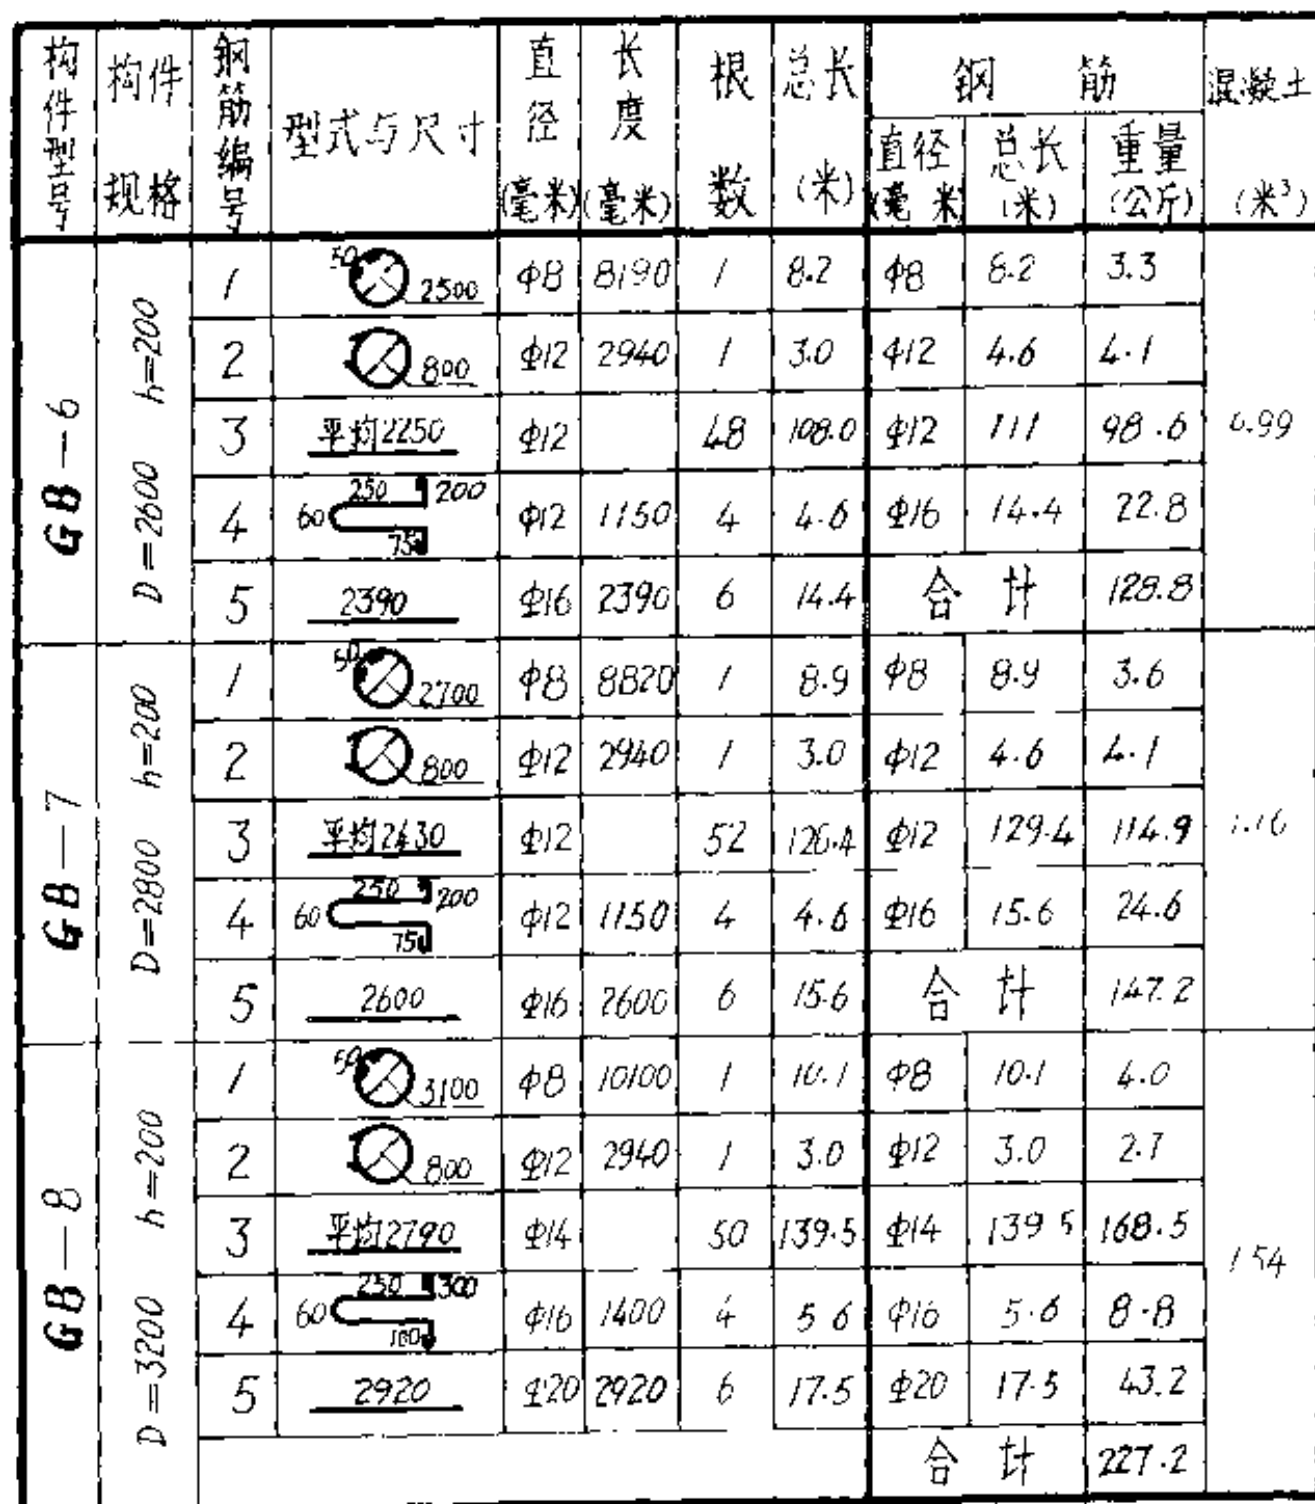 构件型号 构件规格 钢筋编号 型式与尺寸 直径(毫米) 长度(毫米) 根数 总长(米) 钢筋 混凝土(米³)
直径(毫米) 总长(米) 重量(公斤)
GB-6 D=2600 h=200
1 50 2500 Φ8 8190 1 8.2 Φ8 8.2 3.3
2 800 Φ12 2940 1 3.0 Φ12 4.6 4.1
3 平均2250 Φ12 48 108.0 Φ12 111 98.6 0.99
4 60 250 200 75 Φ12 1150 4 4.6 Φ16 14.4 22.8
5 2390 Φ16 2390 6 14.4 合计 128.8
GB-7 D=2800 h=200
1 50 2700 Φ8 8820 1 8.9 Φ8 8.9 3.6
2 800 Φ12 2940 1 3.0 Φ12 4.6 4.1
3 平均2430 Φ12 52 126.4 Φ12 129.4 114.9 1.16
4 60 250 200 75 Φ12 1150 4 4.6 Φ16 15.6 24.6
5 2600 Φ16 2600 6 15.6 合计 147.2
GB-8 D=3200 h=200
1 50 3100 Φ8 10100 1 10.1 Φ8 10.1 4.0
2 800 Φ12 2940 1 3.0 Φ12 3.0 2.7
3 平均2790 Φ14 50 139.5 Φ14 139.5 168.5
4 60 250 300 100 Φ16 1400 4 5.6 Φ16 5.6 8.8 1.54
5 2920 Φ20 2920 6 17.5 Φ20 17.5 43.2
合计 227.2